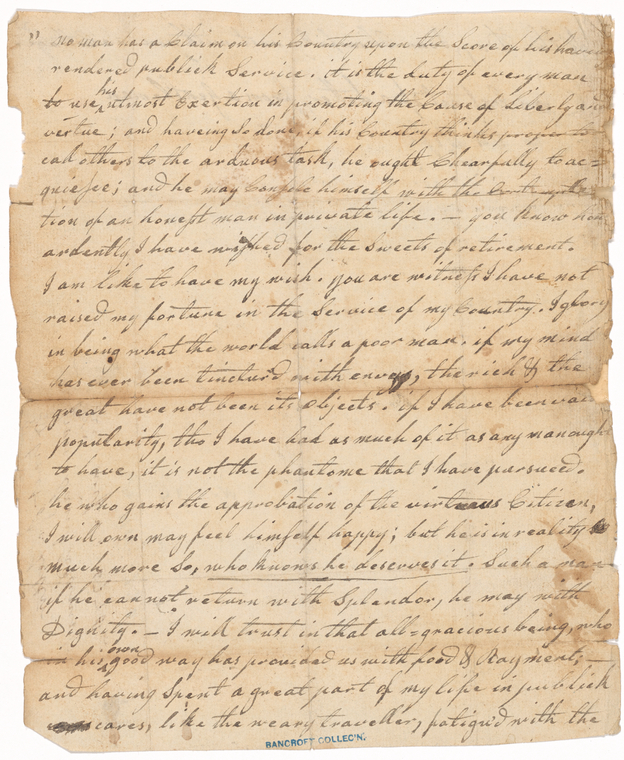 " no man has a Claim on his Country upon the Score of his have
rendered publick Service. it is the duty of every man
to use his utmost Exertion in promoting the Cause of Liberty and
vertue; and haveing so done, if his Country thinks proper to
call others to the arduous task, he ought Chearfully to ac=
quiesce; and he may Console himself with the Contempla
tion of an honest man in private life. — you know how
ardently I have wished for the sweets of retirement.
I am like to have my wish. you are witness I have not
raised my fortune in the Service of my Country. I glory
in being what the world calls a poor man. if my mind
has ever been tinctur'd with envy, the rich & the
great have not been its objects. if I have been vain
popularity, tho I have had as much of it as any man ough
to have, it is not the phantome that I have pursueed.
he who gains the approbation of the vertuous Citizen,
I will own may feel himself happy; but he is in reality
much more so, who knows he deserves it. Such a man
if he cannot return with Splendor, he may with
Dignity. — I will trust in that all=gracious being, who
in his own good way has provided us with food & Rayment; —
and having Spent a great part of my life in publick
cares, like the weary traveller, fatigu'd with the
BANCROFT COLLEC'N.